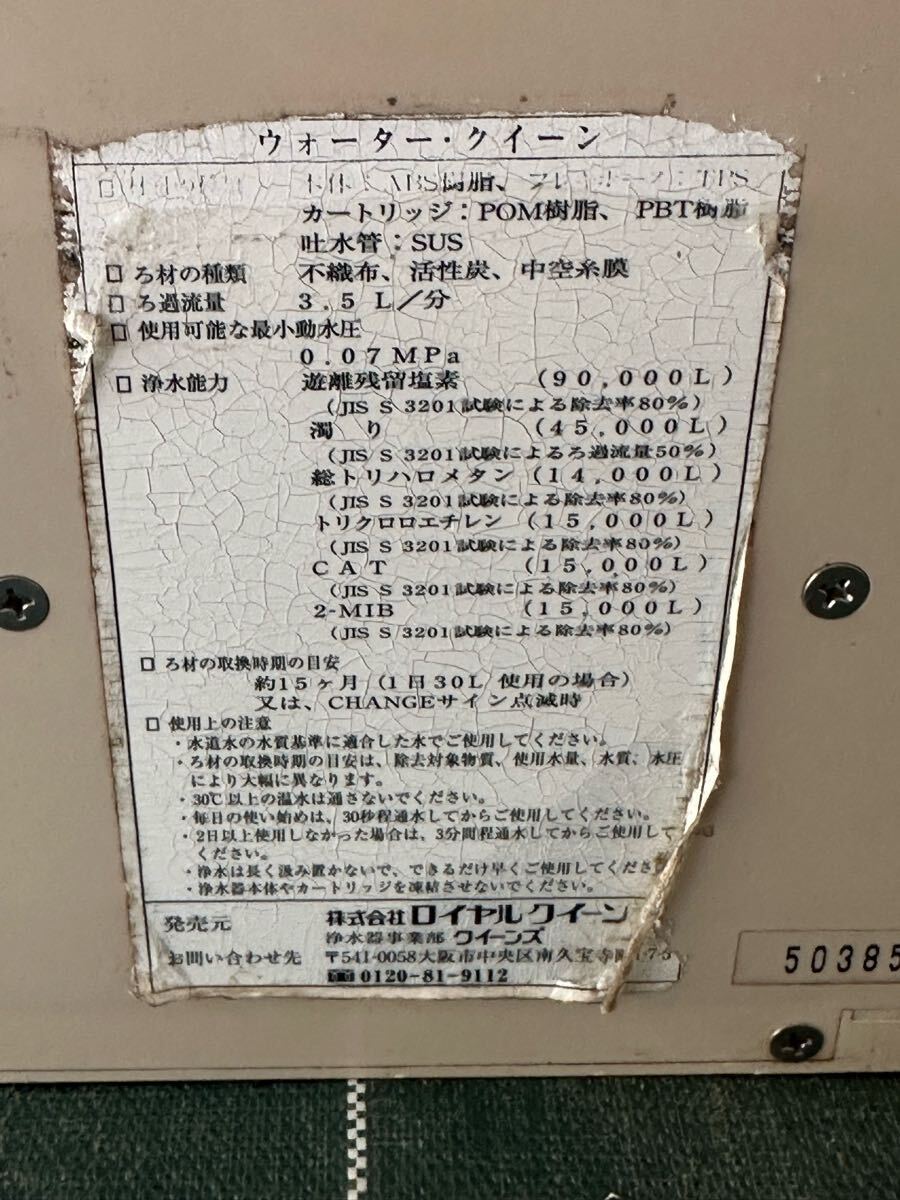 ウォーター・クイーン
本体：ABS樹脂、
カートリッジ：POM樹脂、PBT樹脂
吐水管：SUS
□ ろ材の種類 不織布、活性炭、中空糸膜
□ ろ過流量 3.5L／分
□ 使用可能な最小動水圧
0.07MPa
□ 浄水能力 遊離残留塩素 (90,000L)
(JIS S 3201試験による除去率80%)
濁り (45,000L)
(JIS S 3201試験によるろ過流量50%)
総トリハロメタン (14,000L)
(JIS S 3201試験による除去率80%)
トリクロロエチレン (15,000L)
(JIS S 3201試験による除去率80%)
CAT (15,000L)
(JIS S 3201試験による除去率80%)
2-MIB (15,000L)
(JIS S 3201試験による除去率80%)
□ ろ材の取換時期の目安
約15ヶ月(1日30L使用の場合)
又は、CHANGEサイン点滅時
□ 使用上の注意
・水道水の水質基準に適合した水でご使用してください。
・ろ材の取換時期の目安は、除去対象物質、使用水量、水質、水圧
により大幅に異なります。
・30℃以上の温水は通さないでください。
・毎日の使い始めは、30秒程通水してからご使用してください。
・2日以上使用しなかった場合は、3分間程通水してからご使用して
ください。
・浄水は長く汲み置かないで、できるだけ早くご使用してくださ
・浄水器本体やカートリッジを凍結させないでください。
発売元 株式会社ロイヤルクイーン
浄水器事業部 クイーンズ
お問い合わせ先 〒541-0058大阪市中央区南久宝寺
☎0120-81-9112
50385